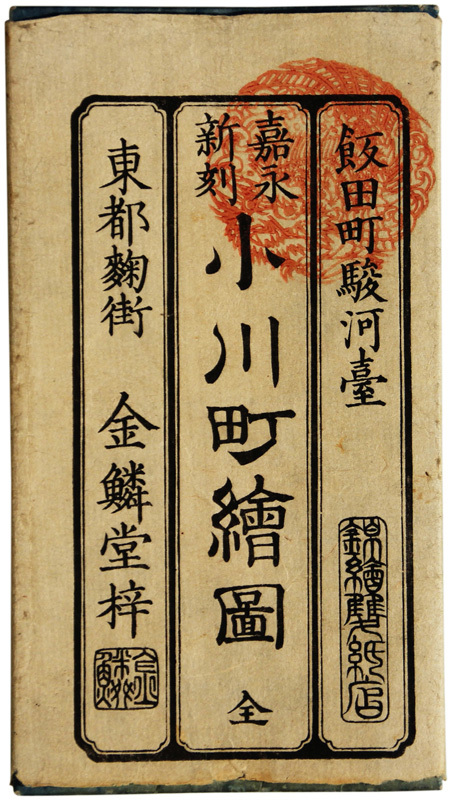 飯田町駿河臺
錦繪雙紙店
嘉永
新刻
小川町繪圖
全
東都麴街
金鱗堂梓